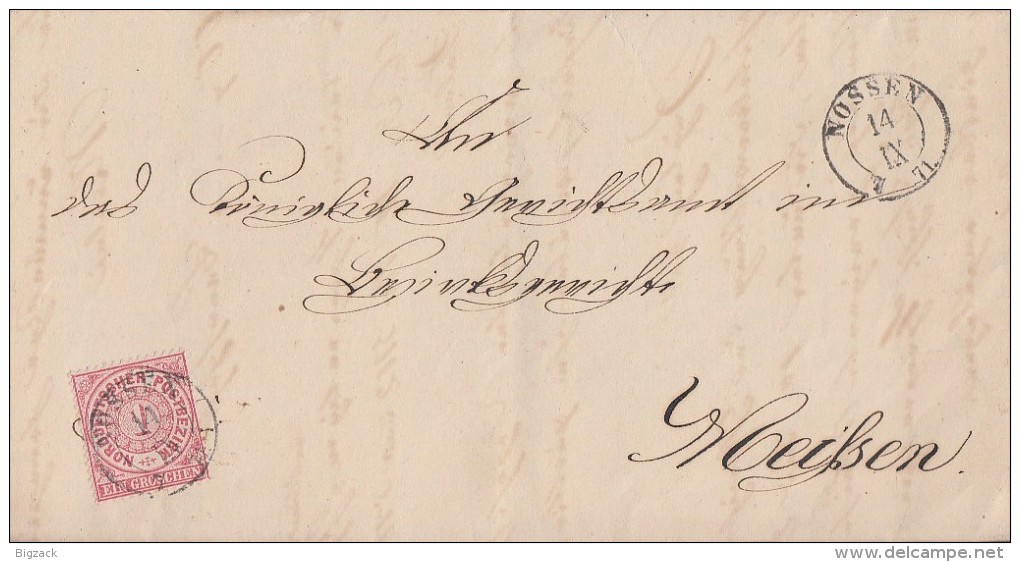 NOSSEN
14
IX
71.
An
das Königliche Gerichtsamt im
Bezirksgericht
Meißen.
NORDDEUTSCHER POSTBEZIRK
1
EIN GROSCHEN
Bigzack
www.delcampe.net